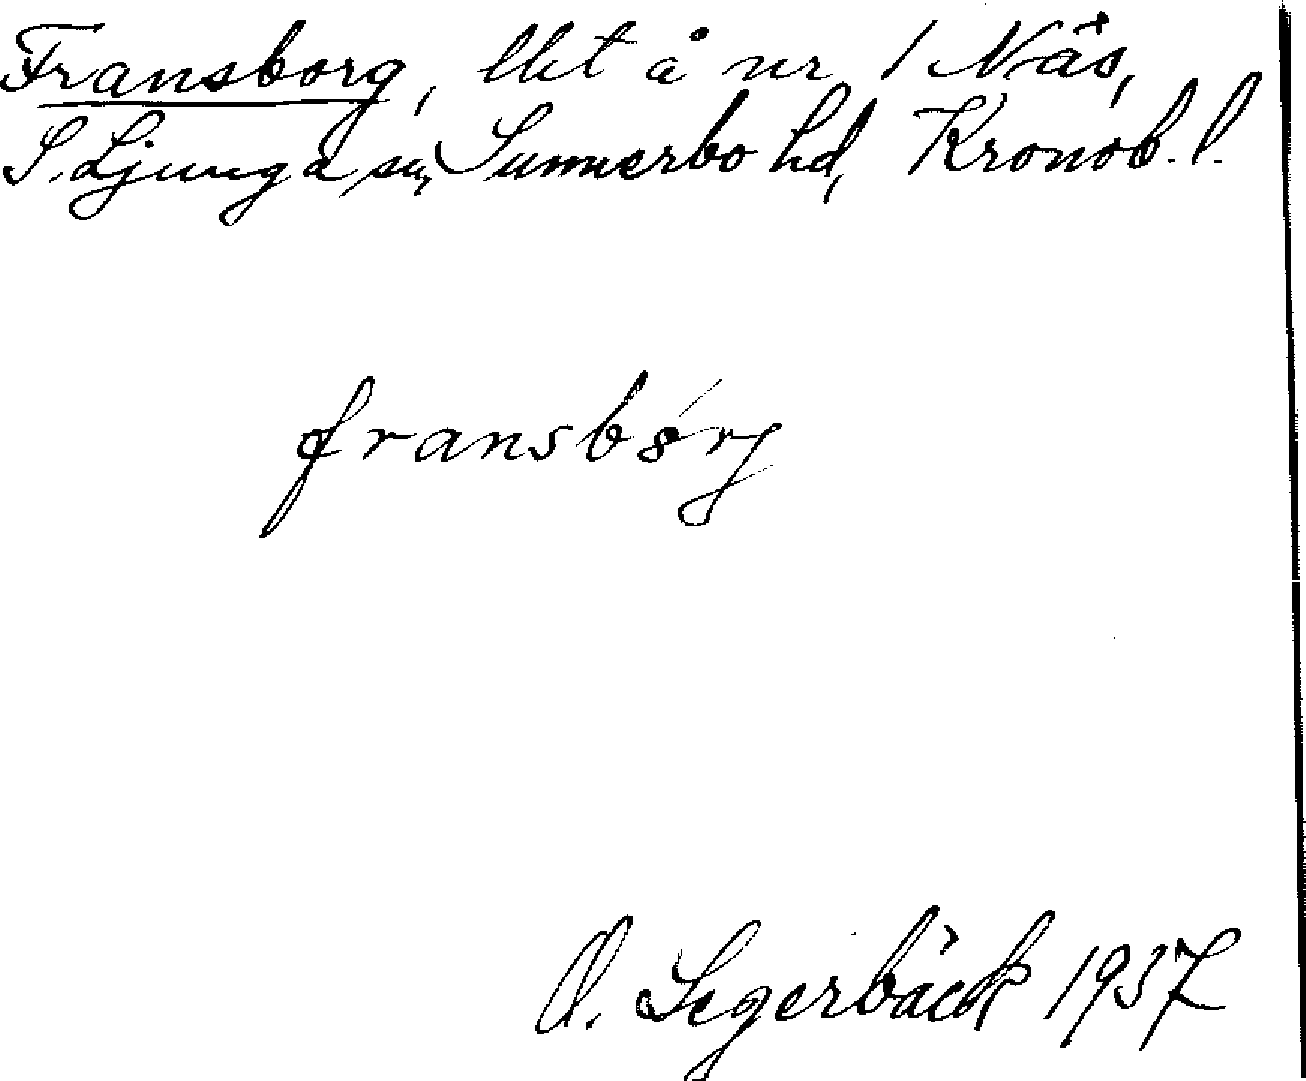 Fransborg, lht å nr 1 Näs,
S. Ljunga sn, Sunnerbo hd, Kronob. l.
fransbórj
O. Segerbäck 1937